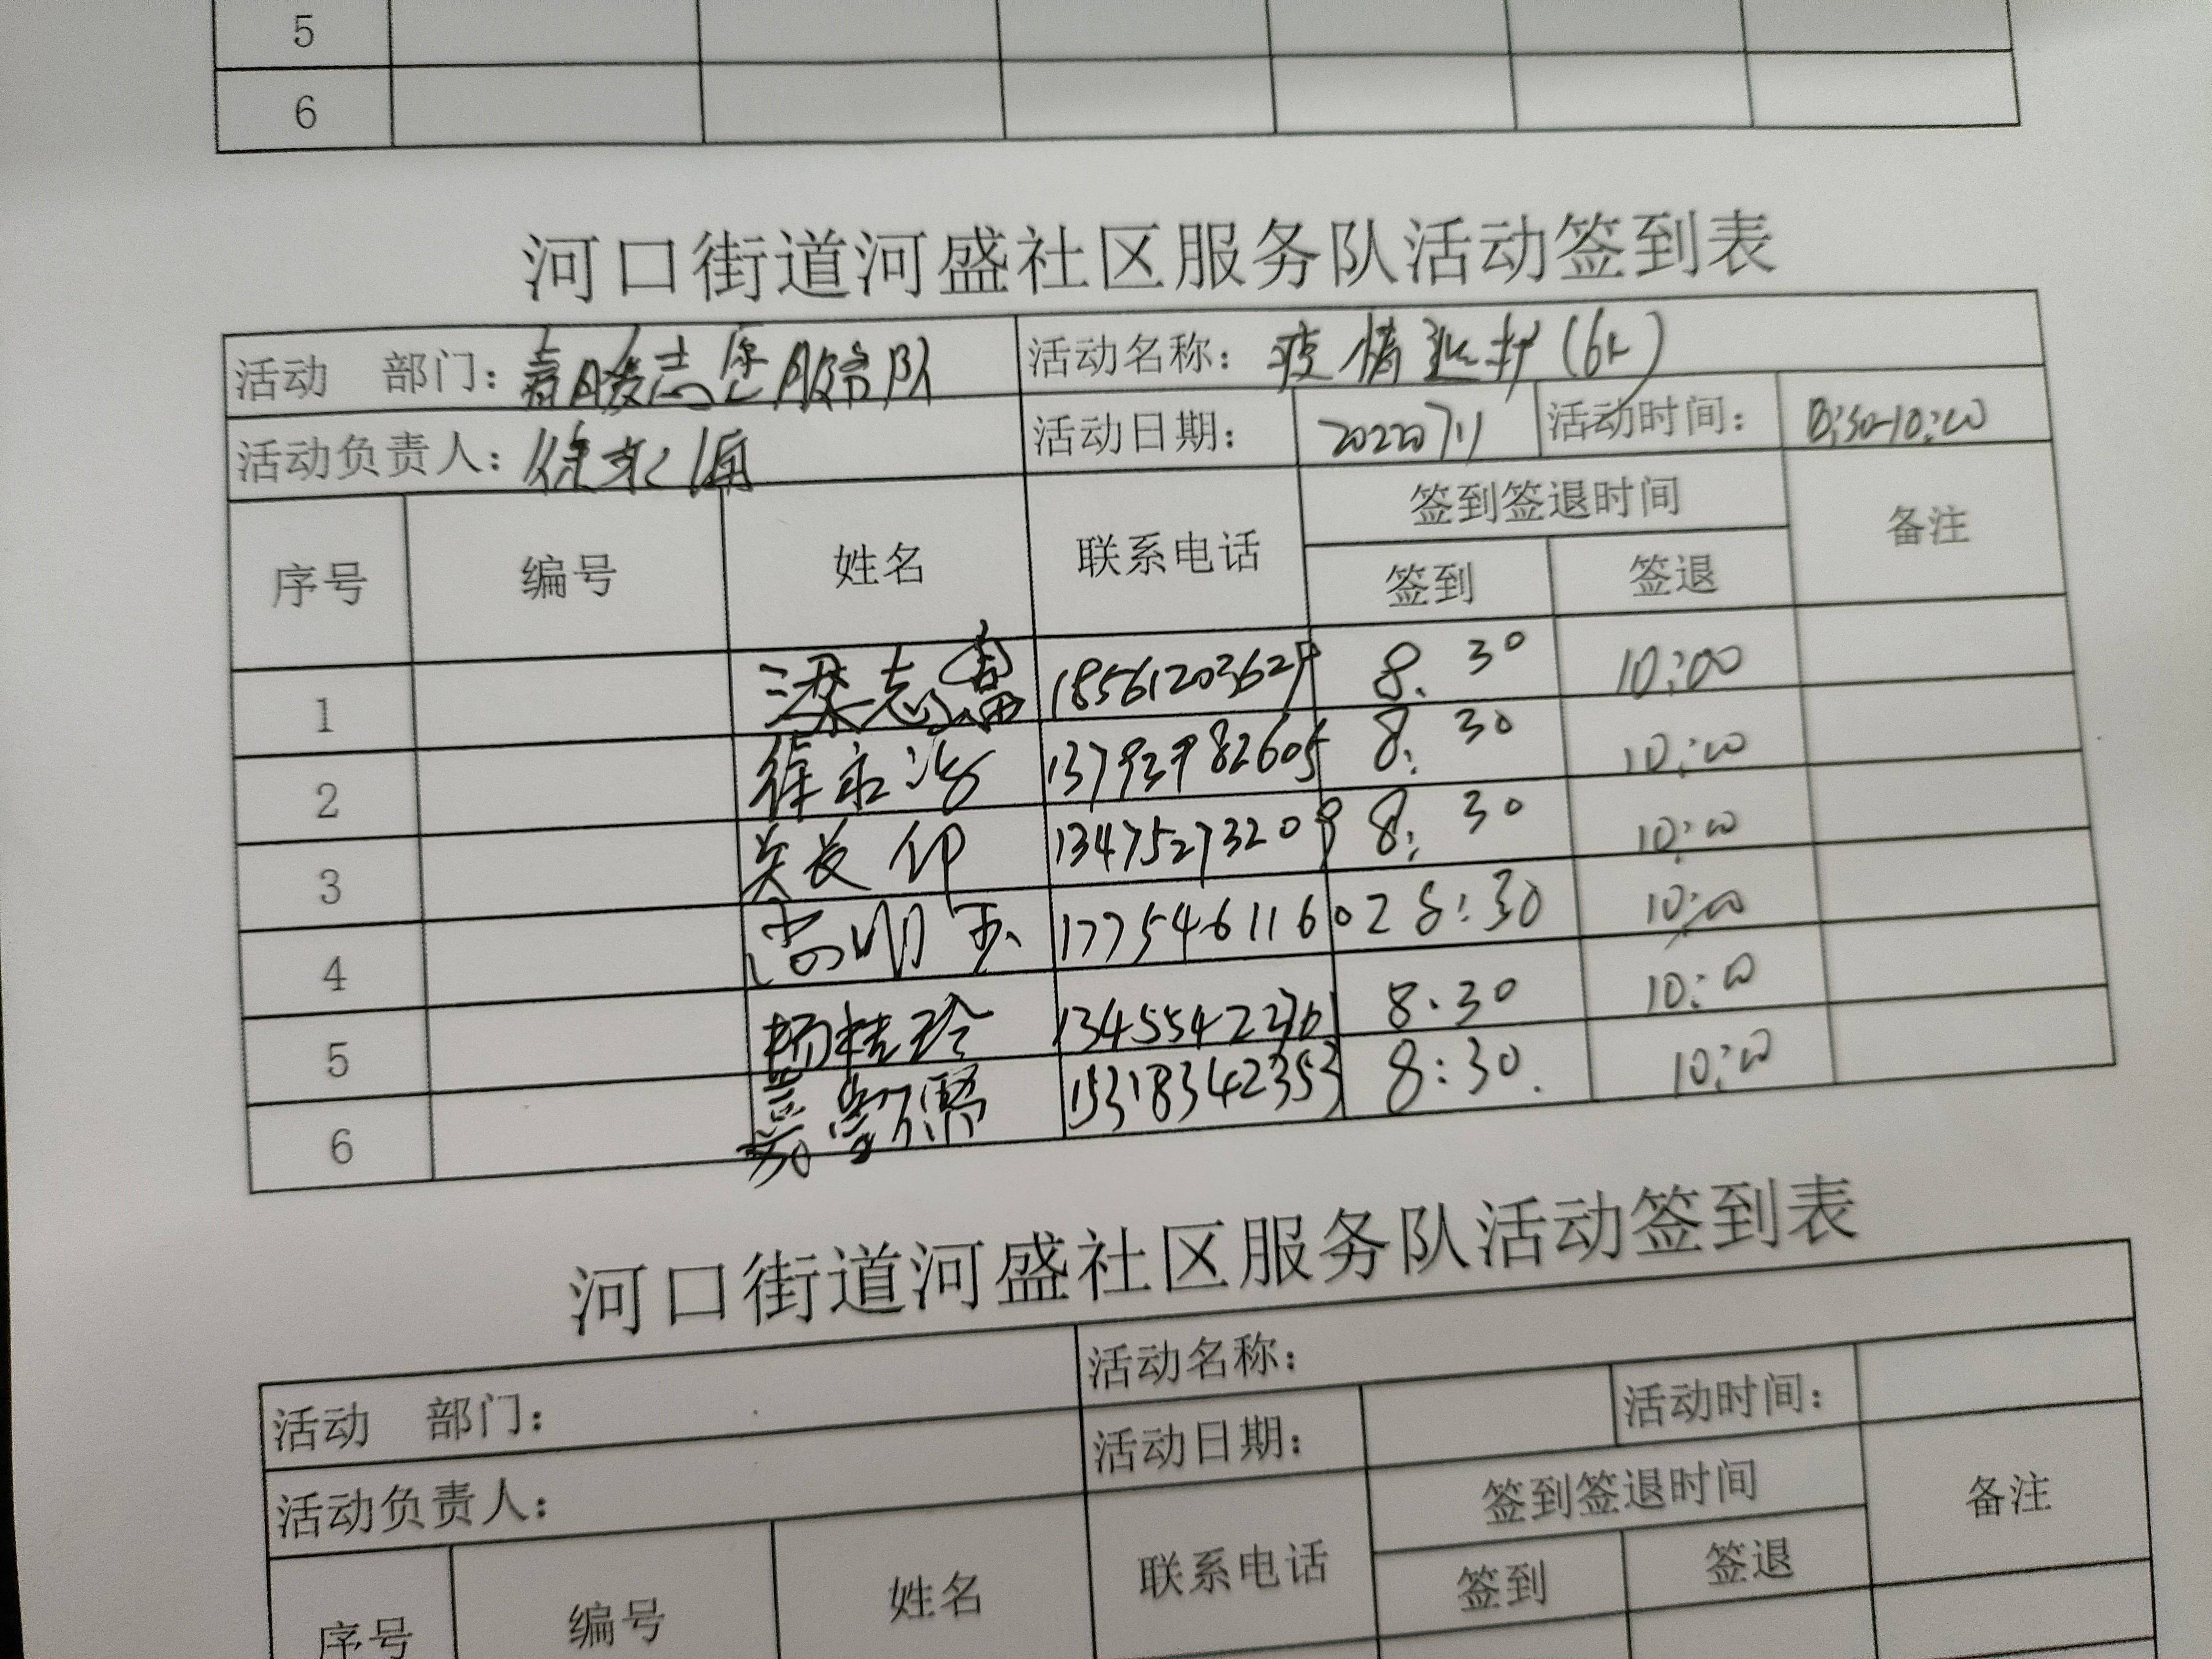 5
6
河口街道河盛社区服务队活动签到表
活动 部门：春暖志愿服务队 活动名称：疫情
活动负责人：徐永 活动日期： 活动时间：
序号 编号 姓名 联系电话 签到签退时间 备注
签到 签退
1 梁志 8.30 10:00
2 徐永 13793982605 8:30 10:00
3 13475273209 8:30 10:00
4 17754611602 8:30 10:00
5 杨桂玲 8.30 10:00
6 15318342353 8:30. 10:00
河口街道河盛社区服务队活动签到表
活动 部门： 活动名称：
活动负责人： 活动日期： 活动时间：
序号 编号 姓名 联系电话 签到签退时间 备注
签到 签退